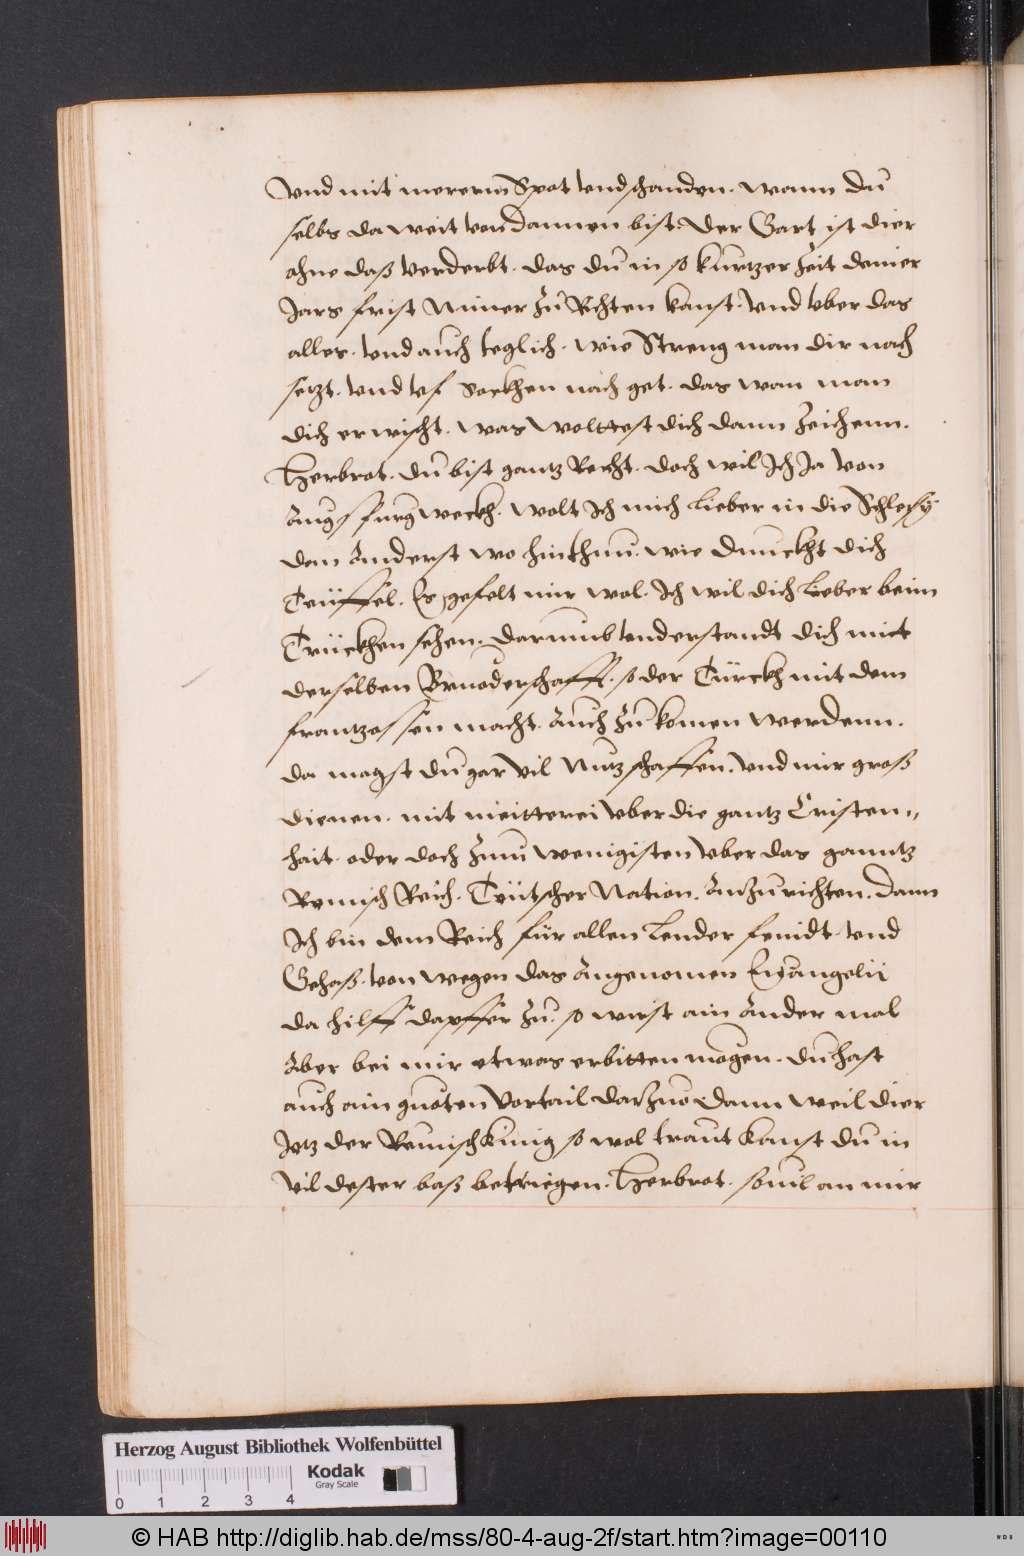 Vnd mit mererm Spot vnd schanden. wann du
selbs da weit von dannen bist. Der Gart ist dier
ohne daß verderbt. das du in so kurtzer Zeit deiner
Jars frist nimer zu Rchten kanst. Vnd vber das
alles. vnd auch teglich. wie Streng man dir nach
setzt. vnd vf Seckhen nach get. das wan man
dich erwischt. was wolttest dich dann Zeichenn.
Herbrot. du bist gantz Recht. doch wil Ich Ja von
Augspurg weckh. wolt Ich mich lieber in die Schlesy
dan Anderst wo hinthun. wie dunckht dich
Teuffel. Es gefelt mir wol. Ich wil dich lieber beim
Trückhen sehen. darumb vnderstandt dich mitt
derselben Bruoderschafft. so der Türckh mit dem
frantzossen macht. Auch zu komen werdenn.
da magst du gar vil Nutz schaffen. vnd mir groß
dienen. mit meitterei vber die gantz Cristen-
hait. oder doch zum wenigisten vber das ganntz
Remisch Reich. Teutscher Nation. Anzurichten. dann
Ich bin dem Reich für allen Lender feindt. vnd
Gehaß. von wegen das Angenomen Evangelii
da hilff dapffer zu. so wirst ain Ander mal
Aber bei mir etwas erbitten mögen. du hast
auch ain guoten Vortail darzuo dann weil dier
Jetz der Remisch Kinig so wol traut kanst du in
vil dester baß betriegen. Herbrot. souil an mir
Herzog August Bibliothek Wolfenbüttel
Kodak
Gray Scale
0 1 2 3 4
© HAB http://diglib.hab.de/mss/80-4-aug-2f/start.htm?image=00110